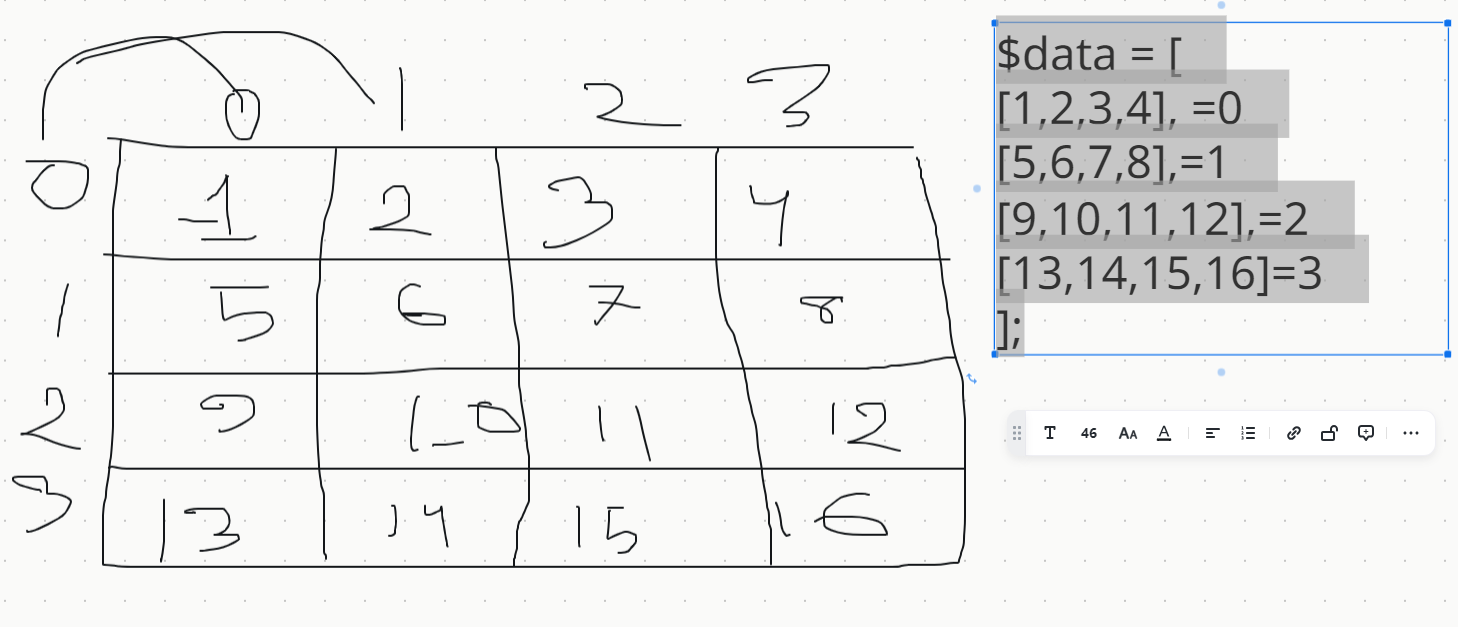 0 1 2 3
0 1 2 3 4
1 5 6 7 8
2 9 10 11 12
3 13 14 15 16
$data = [
[1,2,3,4], =0
[5,6,7,8],=1
[9,10,11,12],=2
[13,14,15,16]=3
];
T 46 AA A